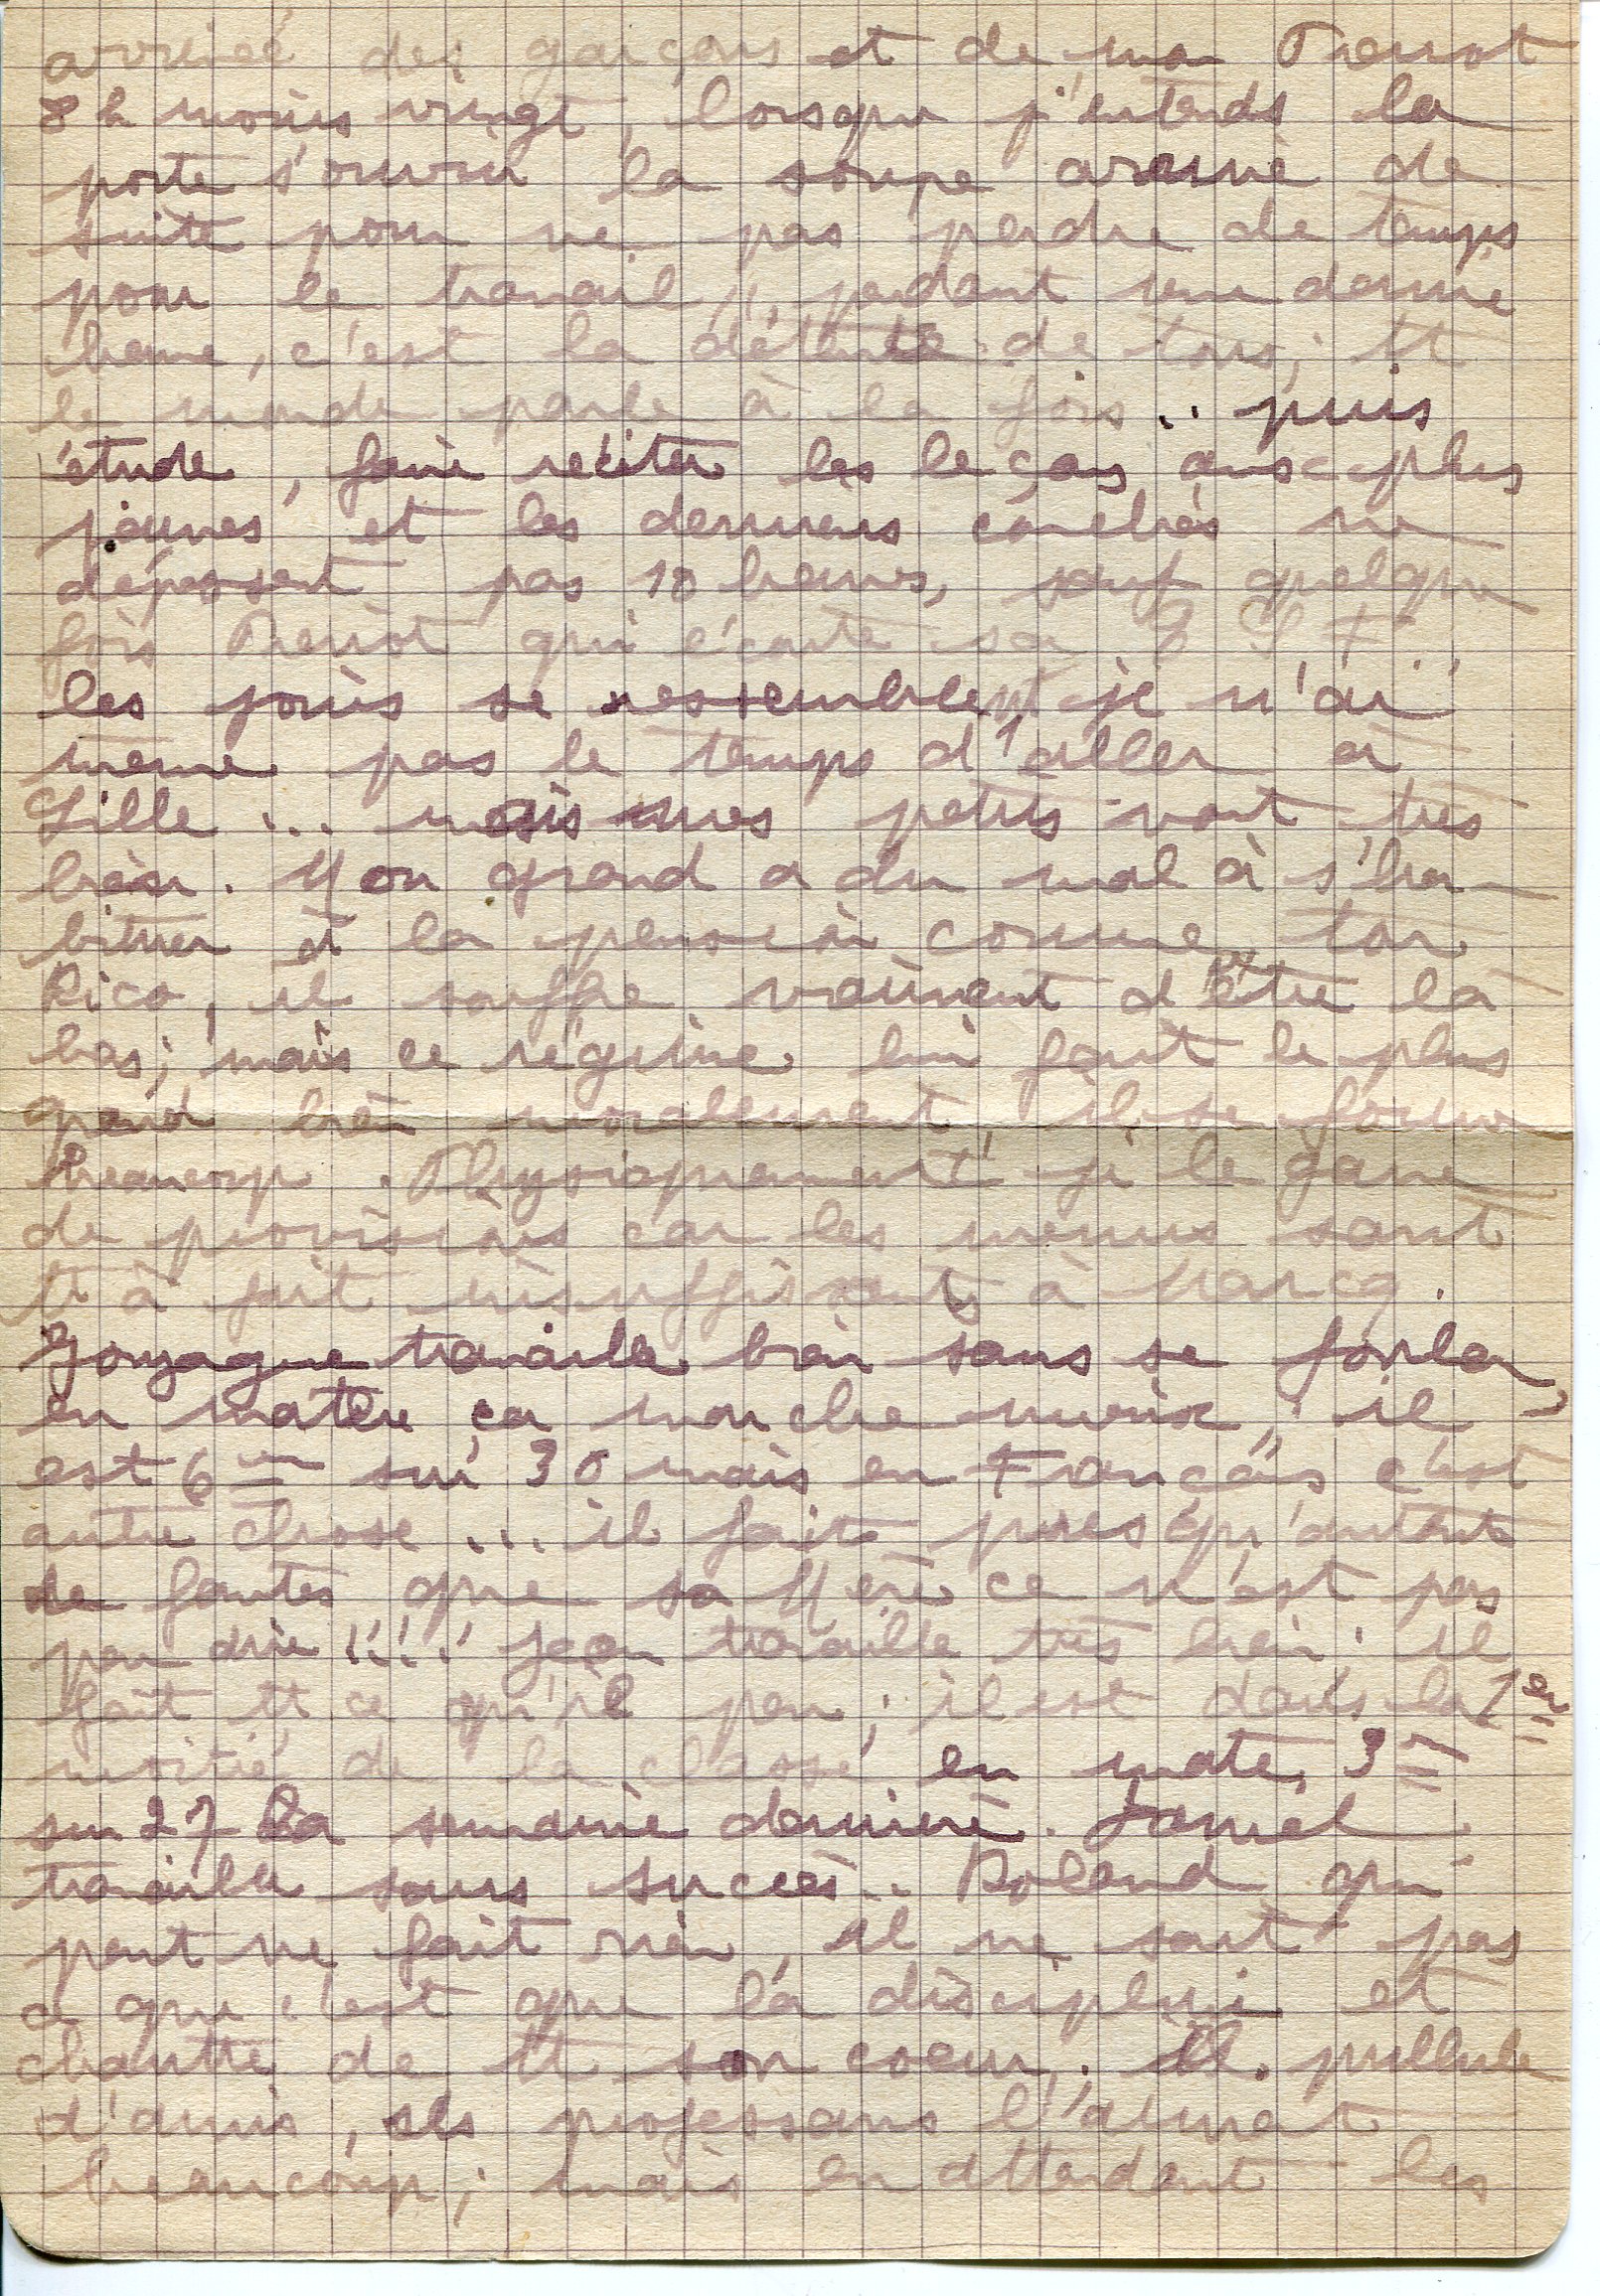 arrivée des garçons et de mon Pierrot
8 h moins vingt, lorsque j'entends la
porte s'ouvrir la soupe arrive de
suite pour ne pas perdre de temps
pour le travail, pendant une demie
heure, c'est la détente de tous; tt
le monde parle à la fois .. puis
étude, faire réciter les leçons aux plus
jeunes et les derniers couchés ne
dépassent pas 10 heures, sauf quelque
fois Pierrot qui écoute sa T S F
les jours se ressemblent je n'ai
même pas le temps d'aller à
Lille ... mais mes petits vont très
bien. Mon grand a du mal à s'ha-
bituer à la pension comme ton
Rico, il souffre vraiment d'être là
bas; mais ce régime lui fait le plus
grand bien moralement, il se forme
beaucoup. Physiquement je le gave
de provisions car les menus sont
tt à fait insuffisants à Marcq.
Gonzague travaille bien sans se fouler,
en mater ça marche mieux, il
est 6em sur 30 mais en Français c'est
autre chose ... il fait presqu'autant
de fautes que sa Mère ce n'est pas
peu dire !!!! Jean travaille très bien. il
fait tt ce qu'il peu; il est dans la 1er
moitié de la classe en mate, 3
sur 27 la semaine dernière. Daniel
travaille sans succès .. Roland qui
peut ne fait rien, il ne sait pas
ce que c'est que la discipline et
chante de tt son coeur; il pullule
d'amis, ses professeurs l'aiment
beaucoup; mais en attendant les